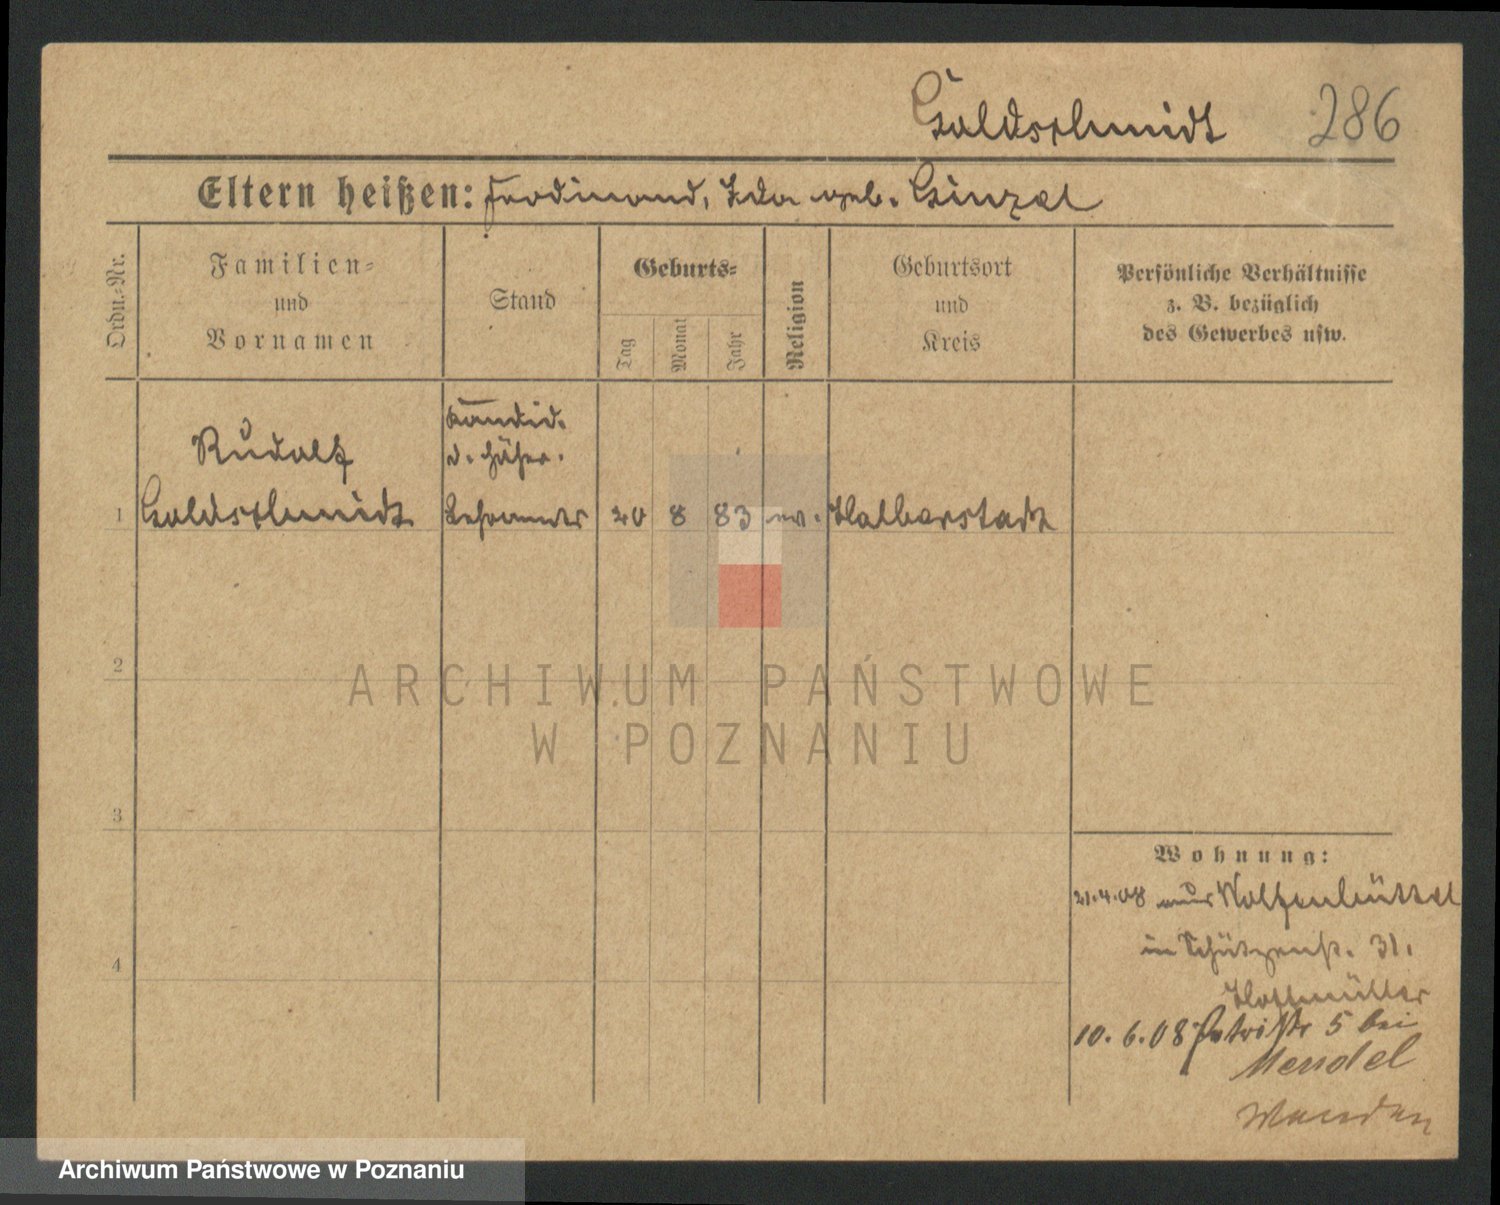 Goldschmidt 286
Eltern heißen: Ferdinand, Ida geb. Ginzel
Ordn.-Nr.
Familien-
und
Vornamen
Stand
Geburts-
Tag
Monat
Jahr
Religion
Geburtsort
und
Kreis
Persönliche Verhältnisse
z. B. bezüglich
des Gewerbes usw.
Kandid.
Rudolf
d. höher.
1 Goldschmidt Lehramts 20 8 83 ev. Halberstadt
2
ARCHIWUM PAŃSTWOWE
W POZNANIU
3
Wohnung:
21.4.08 aus Wolfenbüttel
in Schützenst. 31.
4
10.6.08 Petristr 5 bei
Mendel
Archiwum Państwowe w Poznaniu